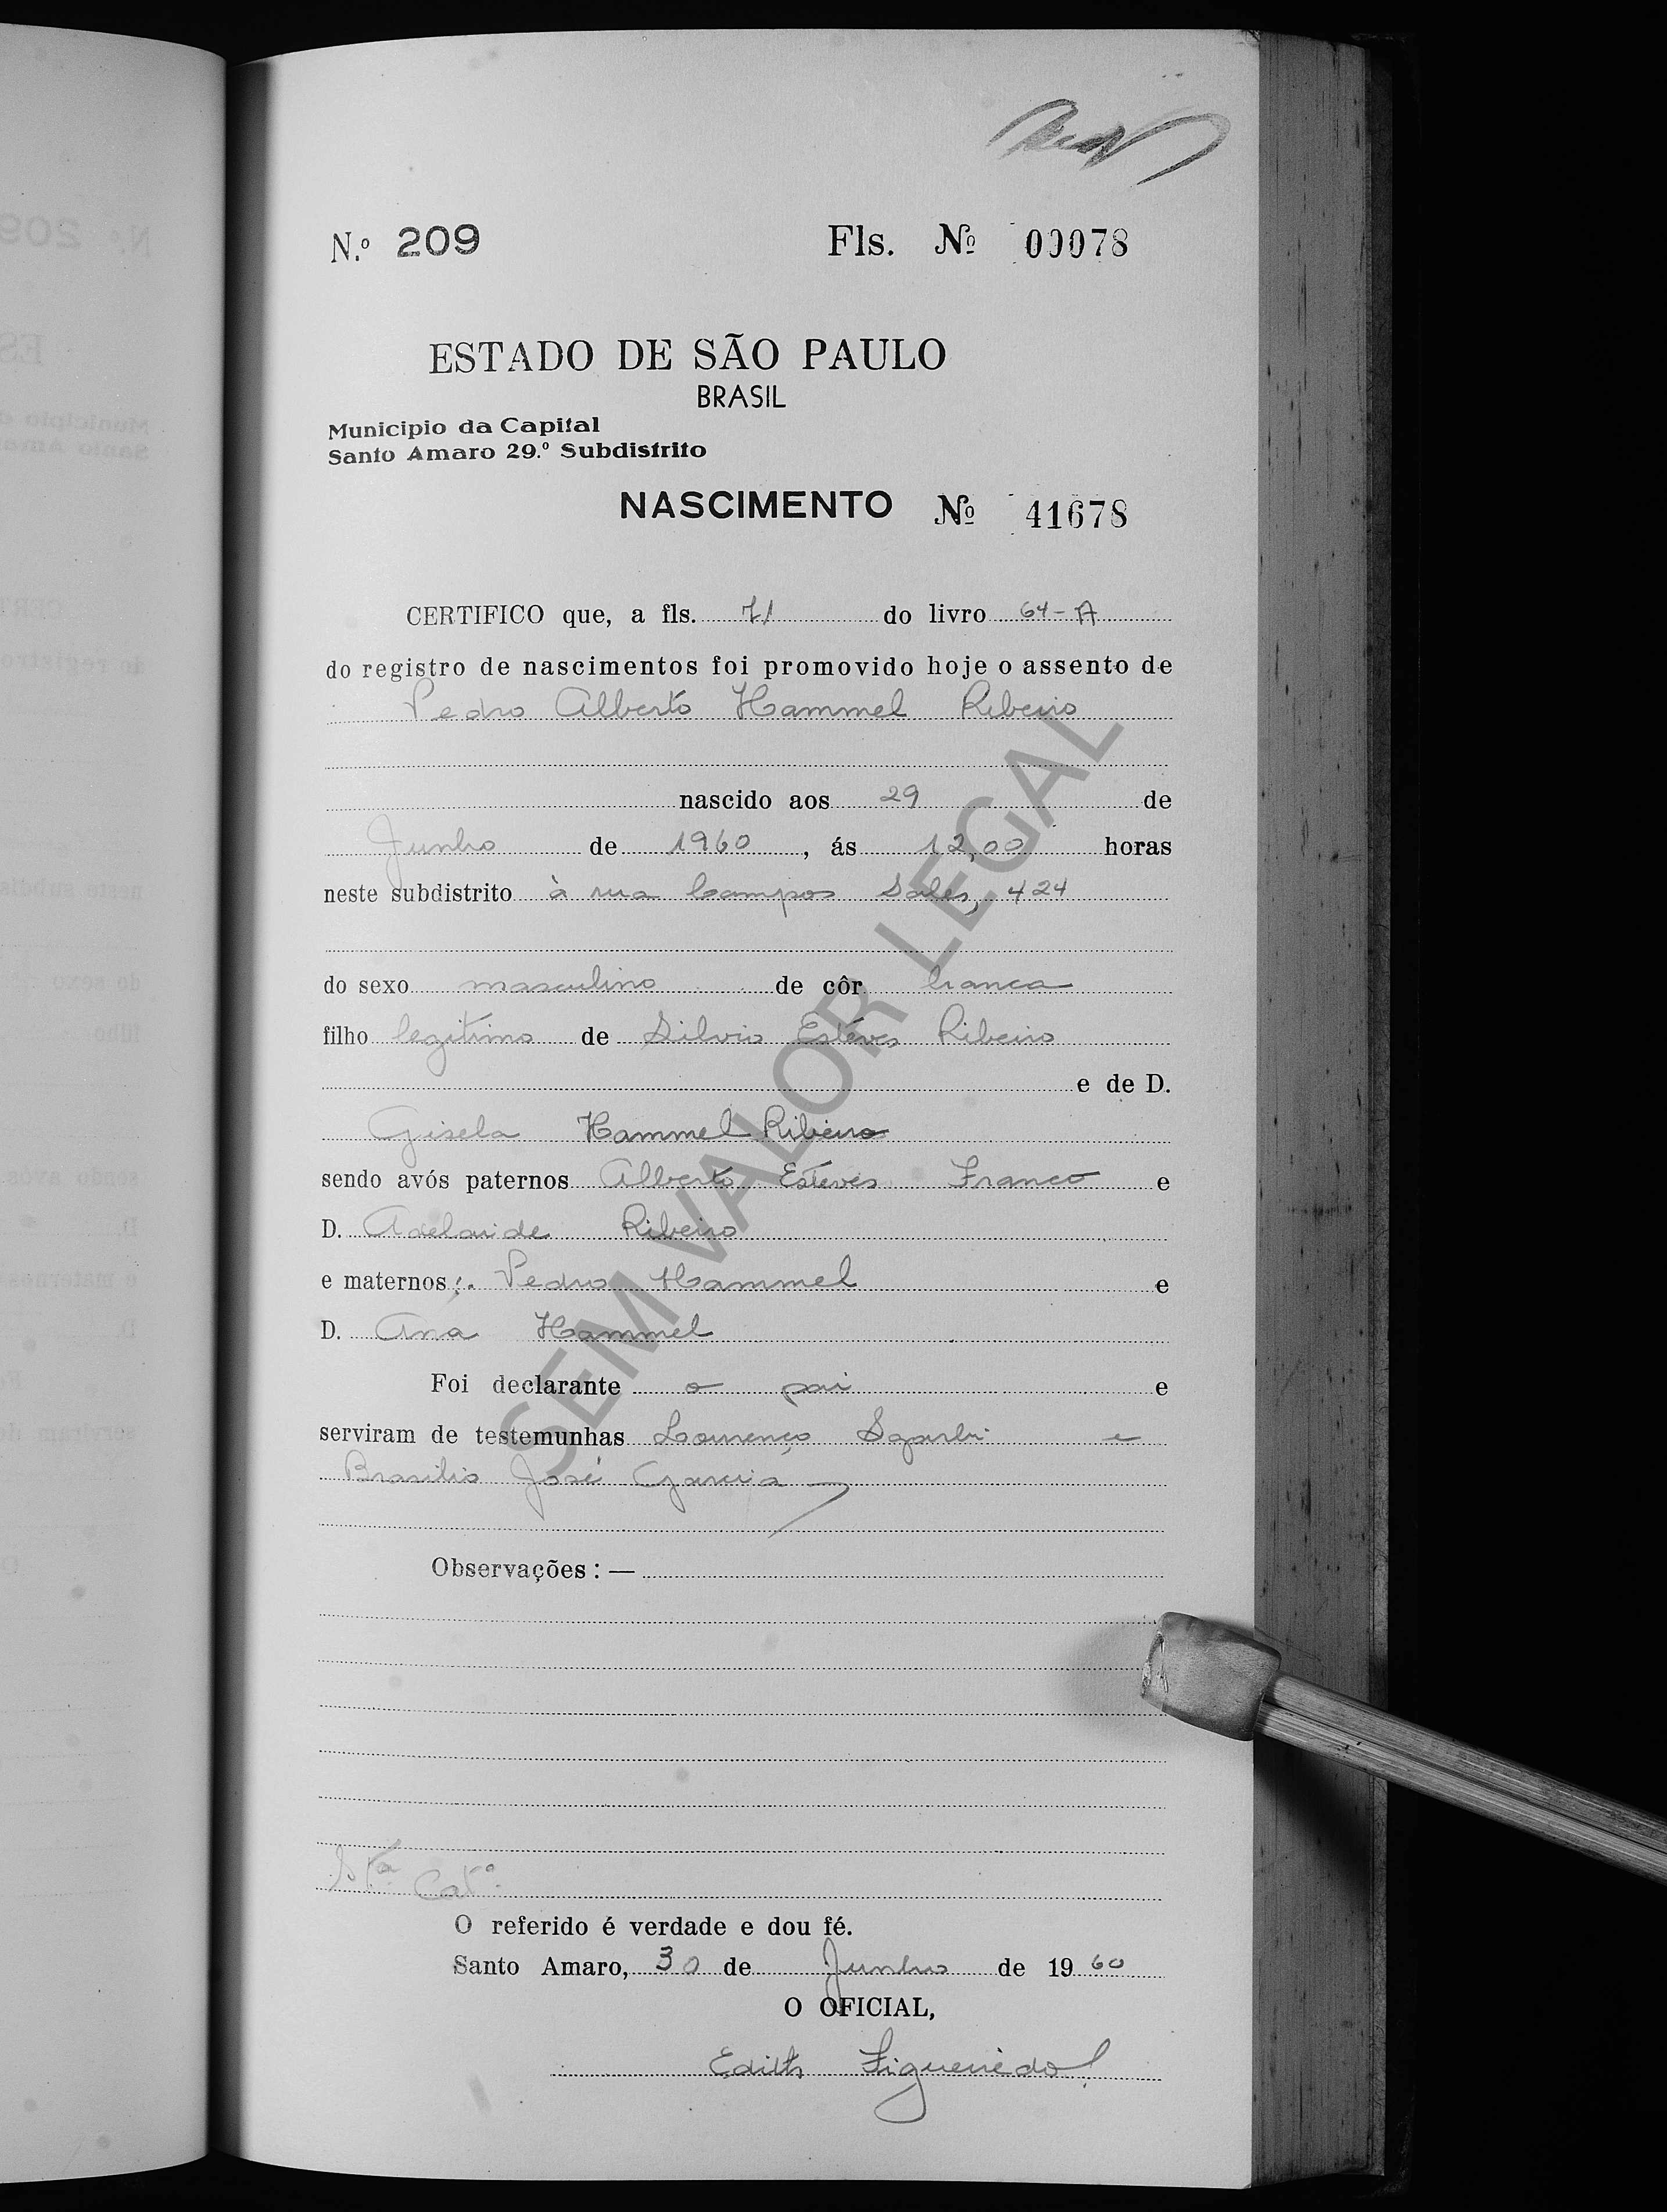 N.º 209 Fls. Nº 00078
ESTADO DE SÃO PAULO
BRASIL
Municipio da Capital
Santo Amaro 29.º Subdistrito
NASCIMENTO Nº 41678
CERTIFICO que, a fls. 71 do livro 64-A
do registro de nascimentos foi promovido hoje o assento de
Pedro Alberto Hammel Ribeiro
nascido aos 29 de
Junho de 1960, ás 12,00 horas
neste subdistrito à rua Campos Sales, 424
do sexo masculino de côr branca
filho legitimo de Silvio Esteves Ribeiro
e de D.
Gisela Hammel Ribeiro
sendo avós paternos Alberto Esteves Franco e
D. Adelaide Ribeiro
e maternos: Pedro Hammel e
D. Ana Hammel
Foi declarante o pai e
serviram de testemunhas Lourenço Sgarbi e
Brasilio José Garcia
Observações: —
Sta Cat.ª
O referido é verdade e dou fé.
Santo Amaro, 30 de Junho de 1960
O OFICIAL,
Edith Figueirêdo
SEM VALOR LEGAL